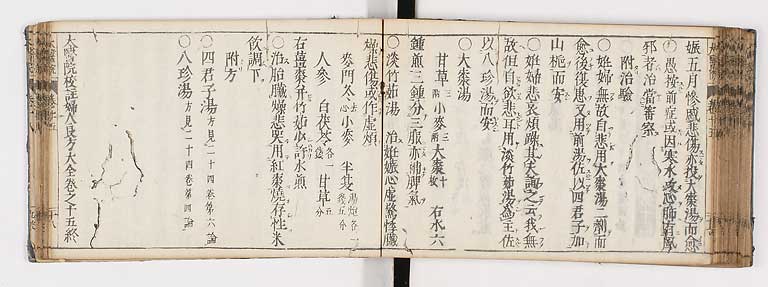 娠五月慘戚悲傷亦投大棗湯而愈
○愚按前症或因寒水攻心肺有風
邪者治當審察
附治驗
○姙婦無故自悲用大棗湯二劑而
愈後復患又用前湯佐以四君子加
山梔而安
○姙婦悲哀煩躁其夫詢之云我無
故但自欲悲耳用淡竹茹湯為主佐
以八珍湯而安
○大棗湯
甘草三兩 小麥三兩 大棗十枚 右水六
鍾煎三鍾分三服亦補脾氣
○淡竹茹湯 治姙娠心虛驚悸臟
燥悲傷或作虛煩
麥門冬去心 小麥 半夏湯泡各一錢五分
人參 白茯苓各一錢 甘草五分
右薑棗幷竹茹少許水煎
○治胎臟燥悲哭用紅棗燒存性米
飲調下
附方
○四君子湯方見二十四卷第六論
○八珍湯方見二十四卷第四論
太醫院校註婦人良方大全卷之十五終